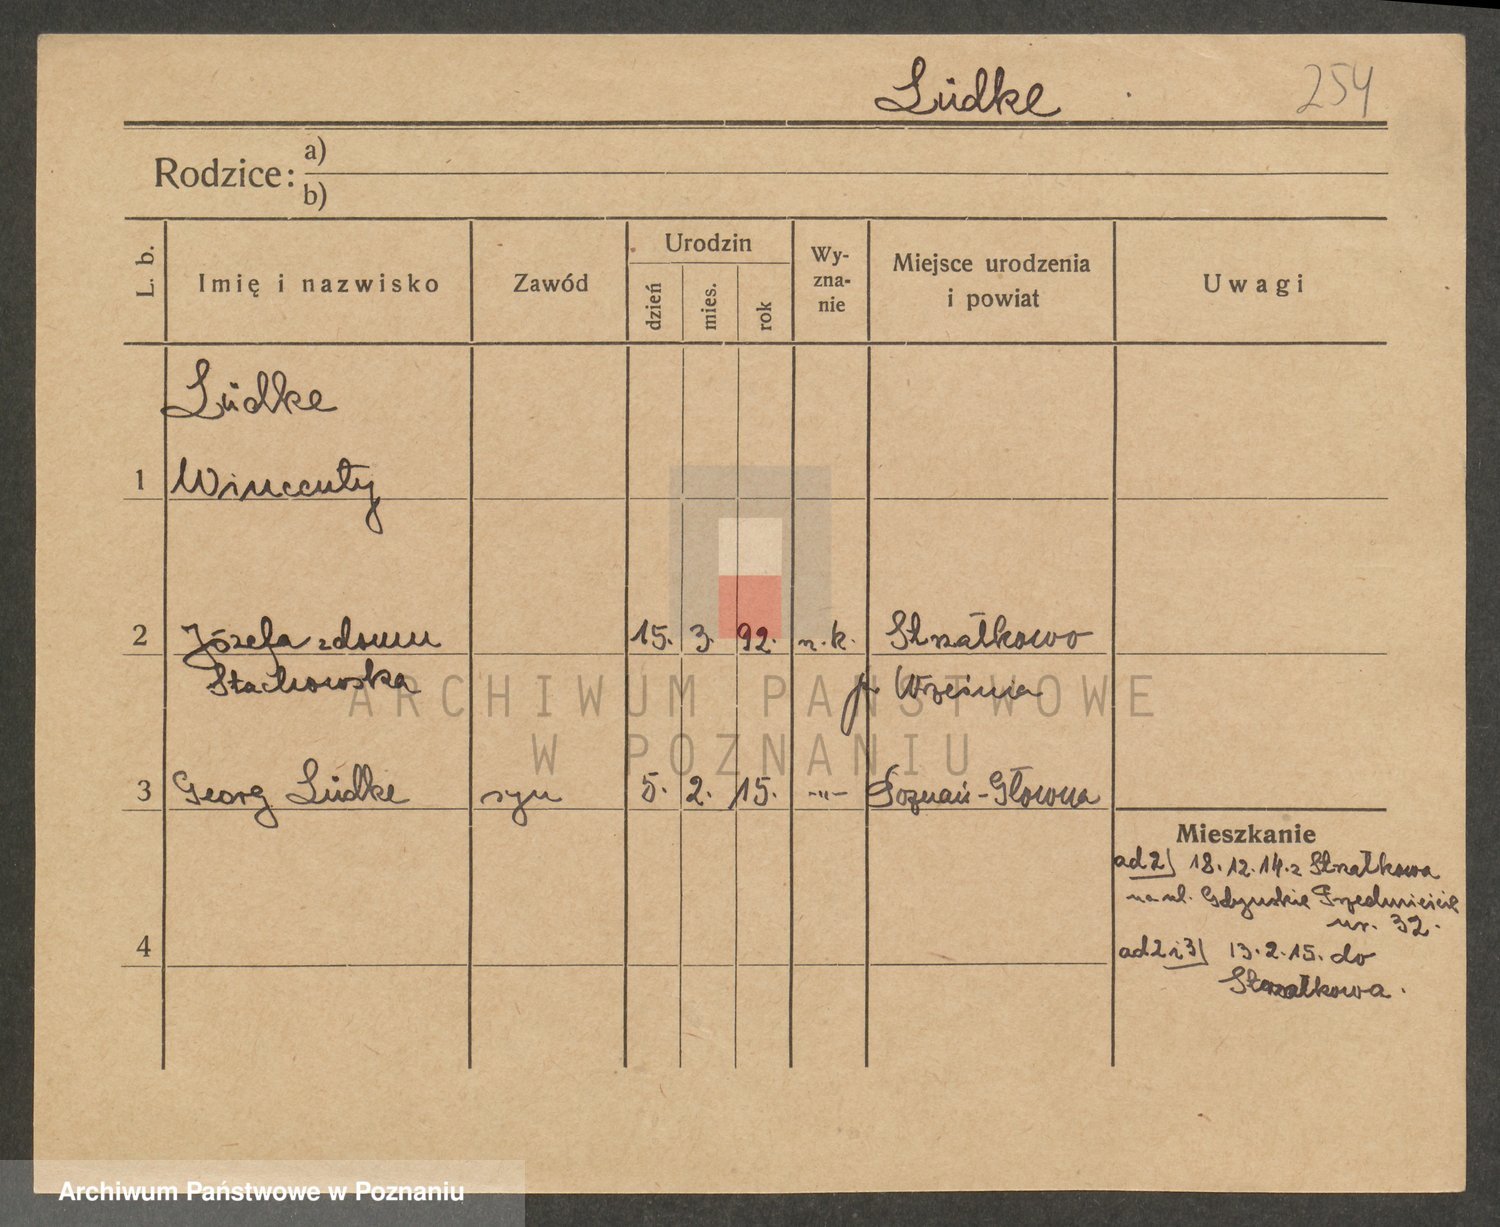 Lüdke
254
Rodzice: a)
b)
L. b.
Imię i nazwisko
Zawód
Urodzin
dzień
mies.
rok
Wy-
zna-
nie
Miejsce urodzenia
i powiat
Uwagi
Lüdke
1 Wincenty
2 Józefa z domu 15. 3. 92. r.k. Strzałkowo
Stachowska p. Września
ARCHIWUM PAŃSTWOWE
W POZNANIU
3 Georg Lüdke syn 5. 2. 15. -"- Poznań-Główna
Mieszkanie
ad 2) 18.12.14. z Strzałkowa
na ul. Gdyńskie Przedmieście
nr. 32.
4
ad 2 i 3) 13.2.15. do
Strzałkowa.
Archiwum Państwowe w Poznaniu